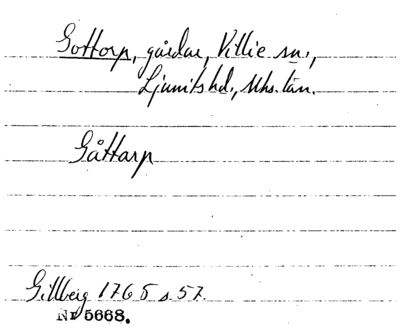 Gottorp, gårdar, Villie sn.,
Ljunits hd., Mhs. län.
Gåttarp
Gillberg 1765 s. 57.
ND 5668.